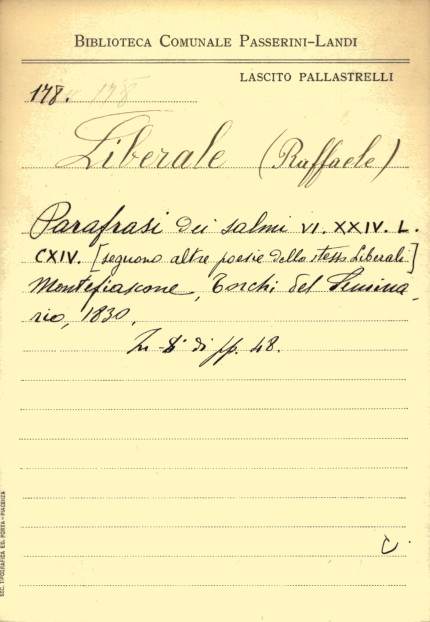 BIBLIOTECA COMUNALE PASSERINI-LANDI
LASCITO PALLASTRELLI
178. 178
Liberale (Raffaele)
Parafrasi dei salmi VI. XXIV. L.
CXIV. [seguono altre poesie dello stesso Liberale]
Montefiascone, Torchi del Semina-
rio, 1830.
In-8° di pp. 48.
C.
SOC. TIPOGRAFICA ED. PORTA - PIACENZA